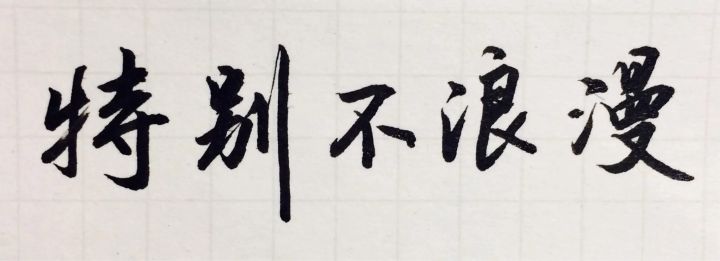 特别不浪漫